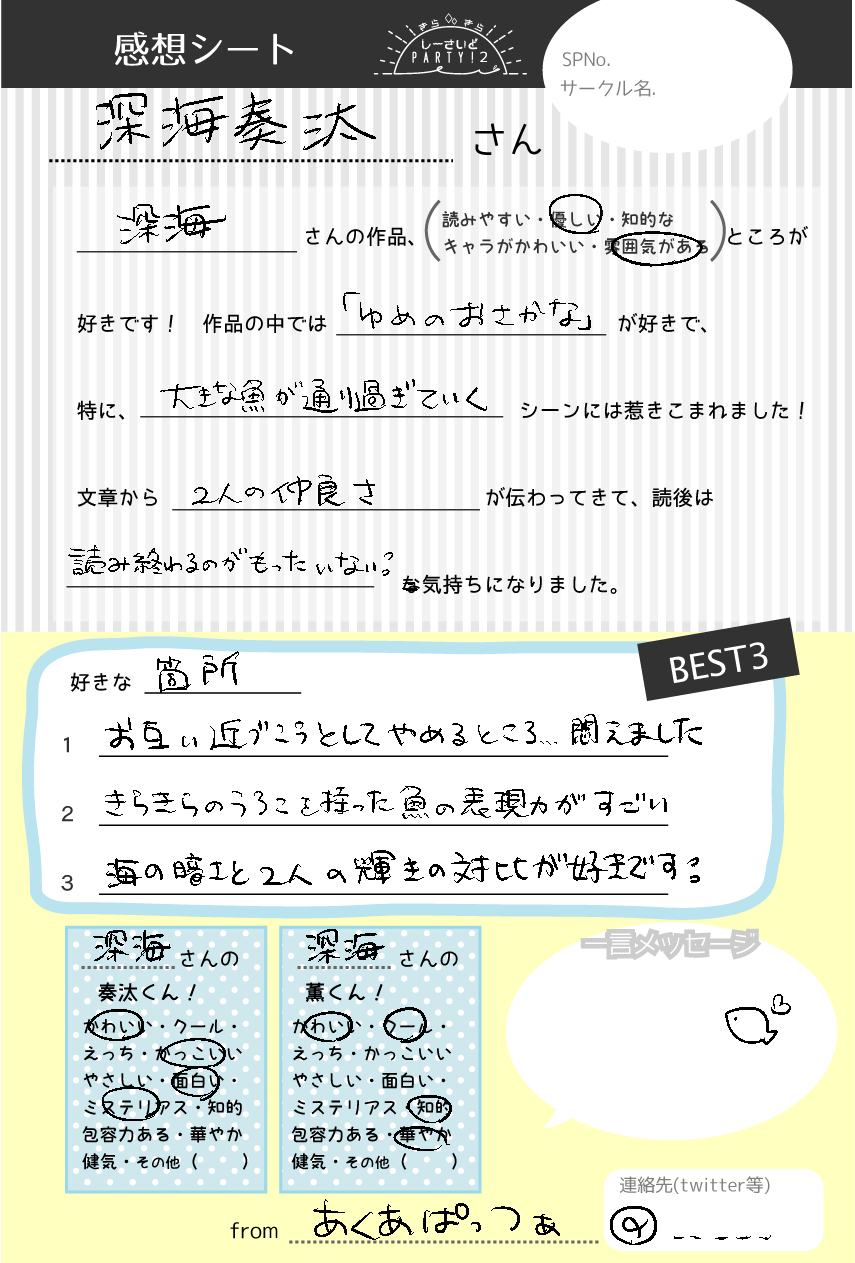 感想シート
きらきら
しーさいど
PARTY!2
SPNo.
サークル名.
深海奏汰 さん
深海 さんの作品、(読みやすい・優しい・知的な
キャラがかわいい・雰囲気がある)ところが
好きです！ 作品の中では 「ゆめのおさかな」 が好きで、
特に、 大きな魚が通り過ぎていく シーンには惹きこまれました！
文章から 2人の仲良さ が伝わってきて、読後は
読み終わるのがもったいない な気持ちになりました。
BEST3
好きな 箇所
1 お互い近づこうとしてやめるところ… 悶えました
2 きらきらのうろこを持った魚の表現力がすごい
3 海の暗さと2人の輝きの対比が好きです
深海 さんの
奏汰くん！
かわいい・クール・
えっち・かっこいい
やさしい・面白い・
ミステリアス・知的
包容力ある・華やか
健気・その他（ ）
深海 さんの
薫くん！
かわいい・クール・
えっち・かっこいい
やさしい・面白い・
ミステリアス・知的
包容力ある・華やか
健気・その他（ ）
一言メッセージ
連絡先(twitter等)
@
from あくあぱっつぁ